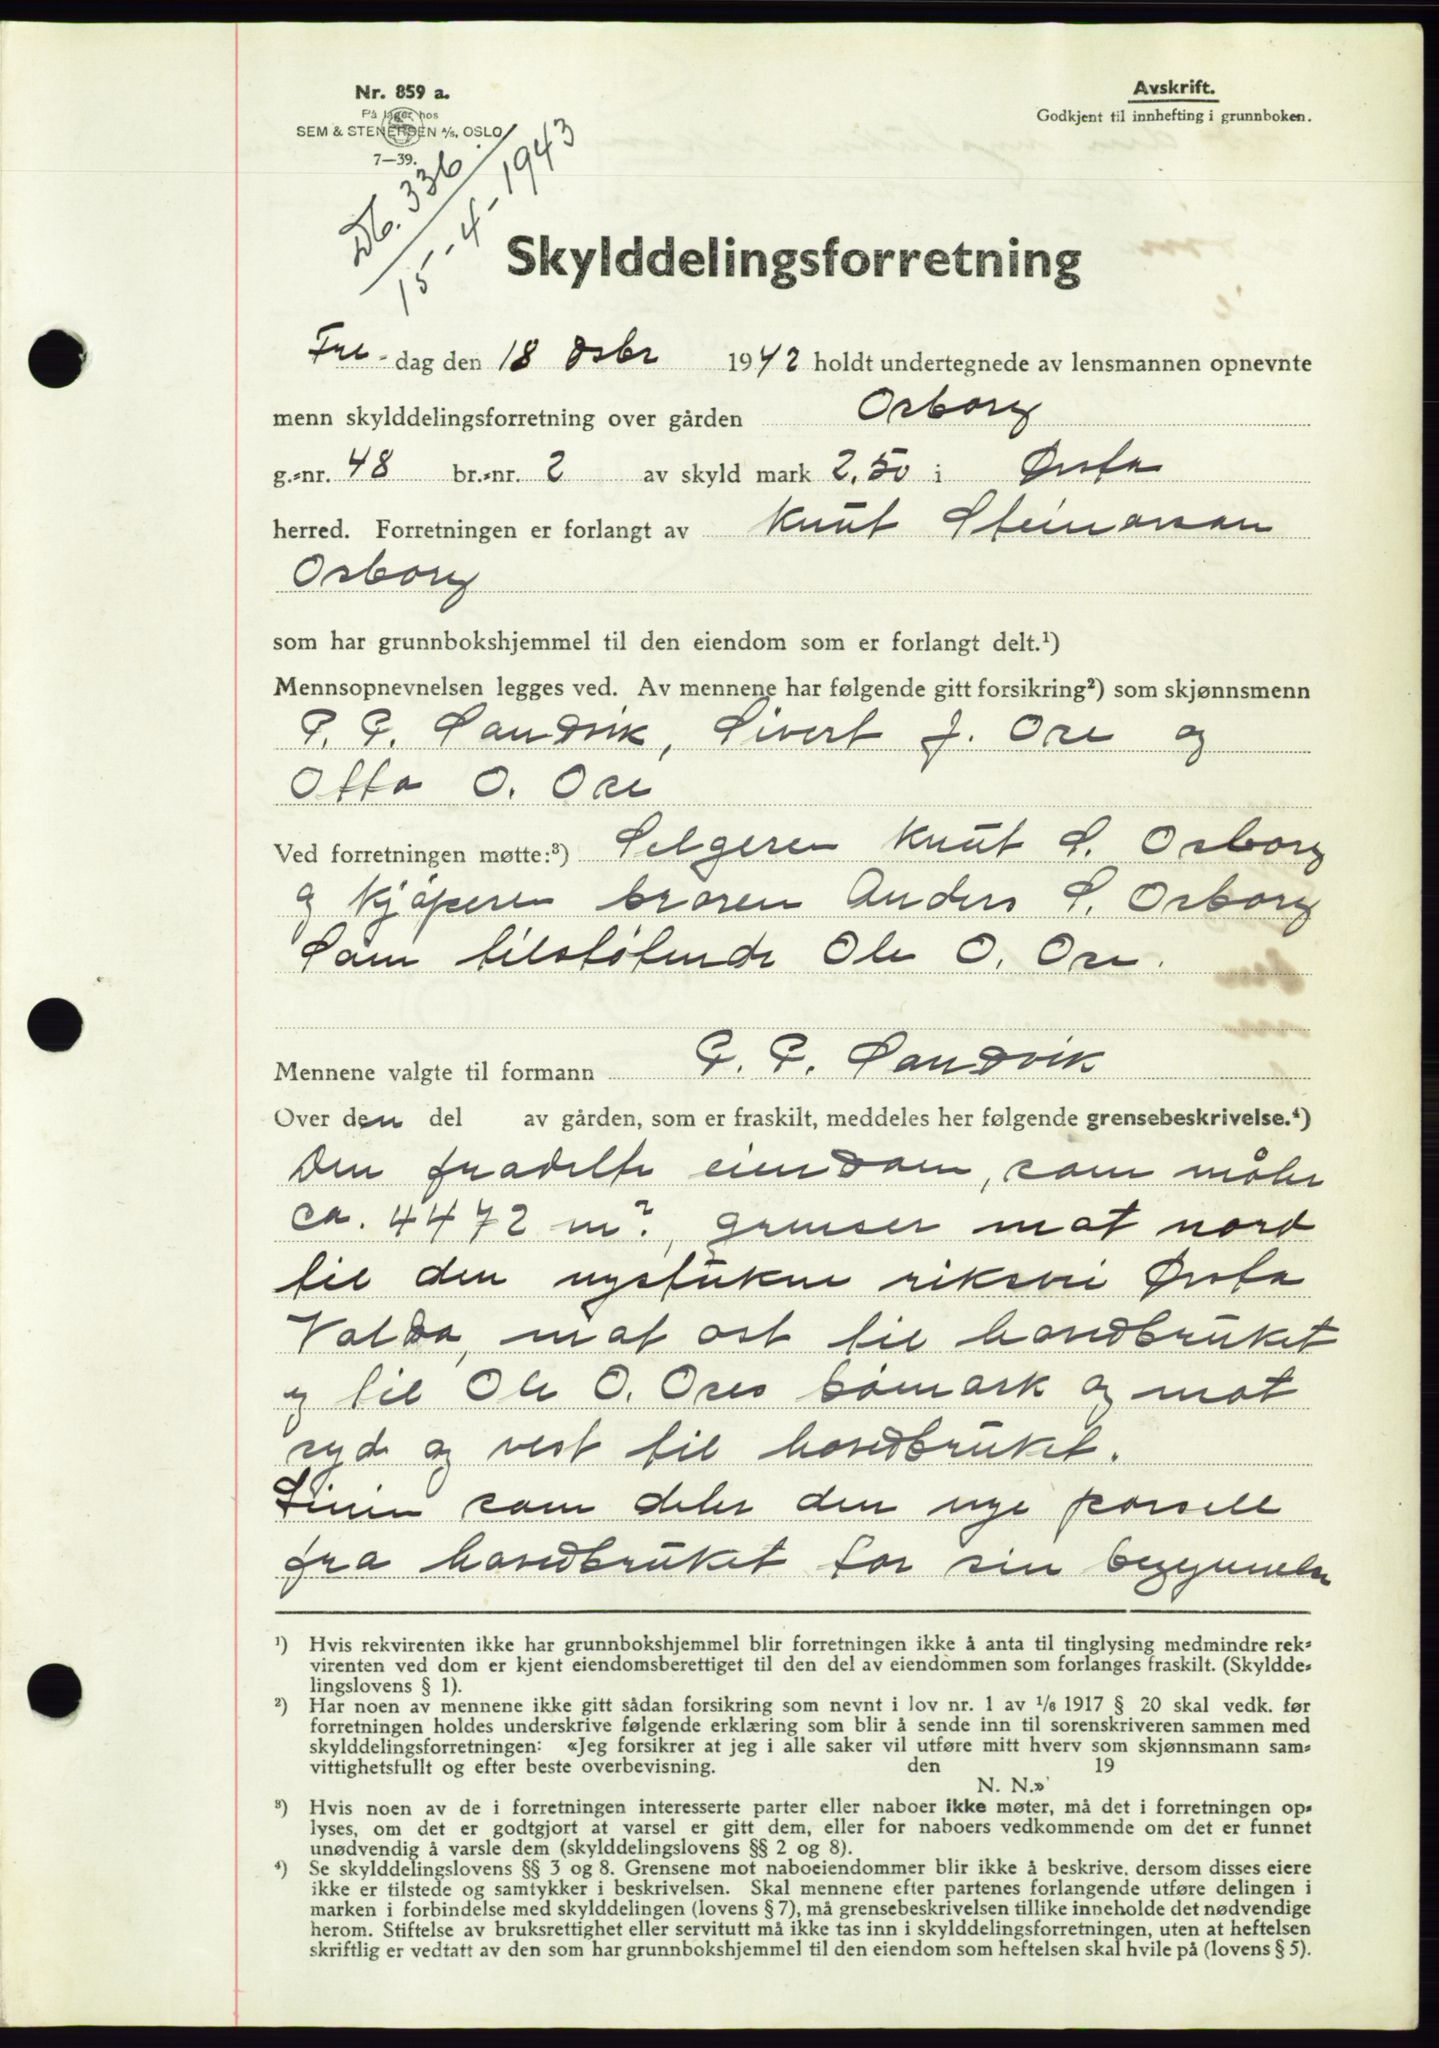 Nr. 859 a.
På lager hos
SEM & STENERSEN A/S, OSLO
7—39.
Avskrift.
Godkjent til innhefting i grunnboken.
Db. 336
15-4-1943
Skylddelingsforretning
Fre-dag den 18 dsbr 1942 holdt undertegnede av lensmannen opnevnte
menn skylddelingsforretning over gården Osborg
g.-nr. 48 br.-nr. 2 av skyld mark 2,50 i Ørsta
herred. Forretningen er forlangt av Knut Steinarson
Osborg
som har grunnbokshjemmel til den eiendom som er forlangt delt.¹)
Mennsopnevnelsen legges ved. Av mennene har følgende gitt forsikring²) som skjønnsmenn
P. P. Sandvik, Sivert J. Ose og
Otto O. Ose
Ved forretningen møtte:³) Selgeren Knut S. Osborg
og kjøperen broren Anders S. Osborg
Som tilstøtende Ole O. Ose.
Mennene valgte til formann P. P. Sandvik
Over den del av gården, som er fraskilt, meddeles her følgende grensebeskrivelse.⁴)
Den fradelte eiendom, som måler
ca. 4472 m², grenser mot nord
til den nystukne riksvei Ørsta
Volda, mot ost til hovedbruket
og til Ole O. Oses bømark og mot
syd og vest til hovedbruket.
Linin som deler den nye parsell
fra hovedbruket tar sin begynnelse
¹) Hvis rekvirenten ikke har grunnbokshjemmel blir forretningen ikke å anta til tinglysing medmindre rek-
virenten ved dom er kjent eiendomsberettiget til den del av eiendommen som forlanges fraskilt. (Skyldde-
lingslovens § 1).
²) Har noen av mennene ikke gitt sådan forsikring som nevnt i lov nr. 1 av 1/6 1917 § 20 skal vedk. før
forretningen holdes underskrive følgende erklæring som blir å sende inn til sorenskriveren sammen med
skylddelingsforretningen: «Jeg forsikrer at jeg i alle saker vil utføre mitt hverv som skjønnsmann sam-
vittighetsfullt og efter beste overbevisning. den 19
N. N.»
³) Hvis noen av de i forretningen interesserte parter eller naboer ikke møter, må det i forretningen op-
lyses, om det er godtgjort at varsel er gitt dem, eller for naboers vedkommende om det er funnet
unødvendig å varsle dem (skylddelingslovens §§ 2 og 8).
⁴) Se skylddelingslovens §§ 3 og 8. Grensene mot naboeiendommer blir ikke å beskrive, dersom disses eiere
ikke er tilstede og samtykker i beskrivelsen. Skal mennene efter partenes forlangende utføre delingen i
marken i forbindelse med skylddelingen (lovens § 7), må grensebeskrivelsen tillike inneholde det nødvendige
herom. Stiftelse av bruksrettighet eller servitutt må ikke tas inn i skylddelingsforretningen, uten at heftelsen
skriftlig er vedtatt av den som har grunnbokshjemmel til den eiendom som heftelsen skal hvile på (lovens § 5).